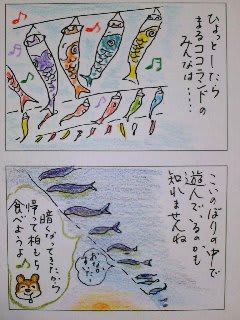 ひょっとしたら
まるココランドの
みんなは・・・・
こいのぼりの中で
遊んでいるかも
知れませんね
暗くなってきたから
帰って柏もち
食べようよ♪